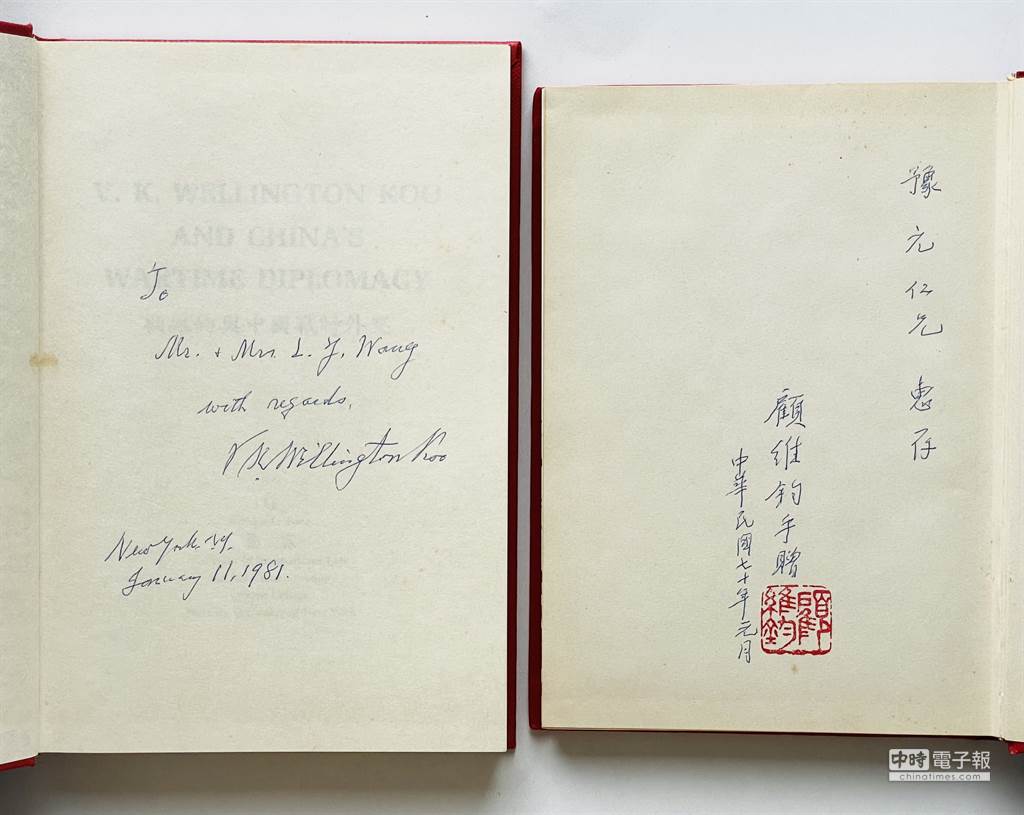 V. K. WELLINGTON KOO
AND CHINA'S
WARTIME DIPLOMACY
顧維鈞與中國戰時外交
To
Mr. & Mrs. L. Y. Wang
with regards,
V. K. Wellington Koo
New York, N.Y.
January 11, 1981.
豫元仁兄 惠存
顧維鈞手贈
中華民國七十年元月
顧維鈞印
中時電子報
chinatimes.com